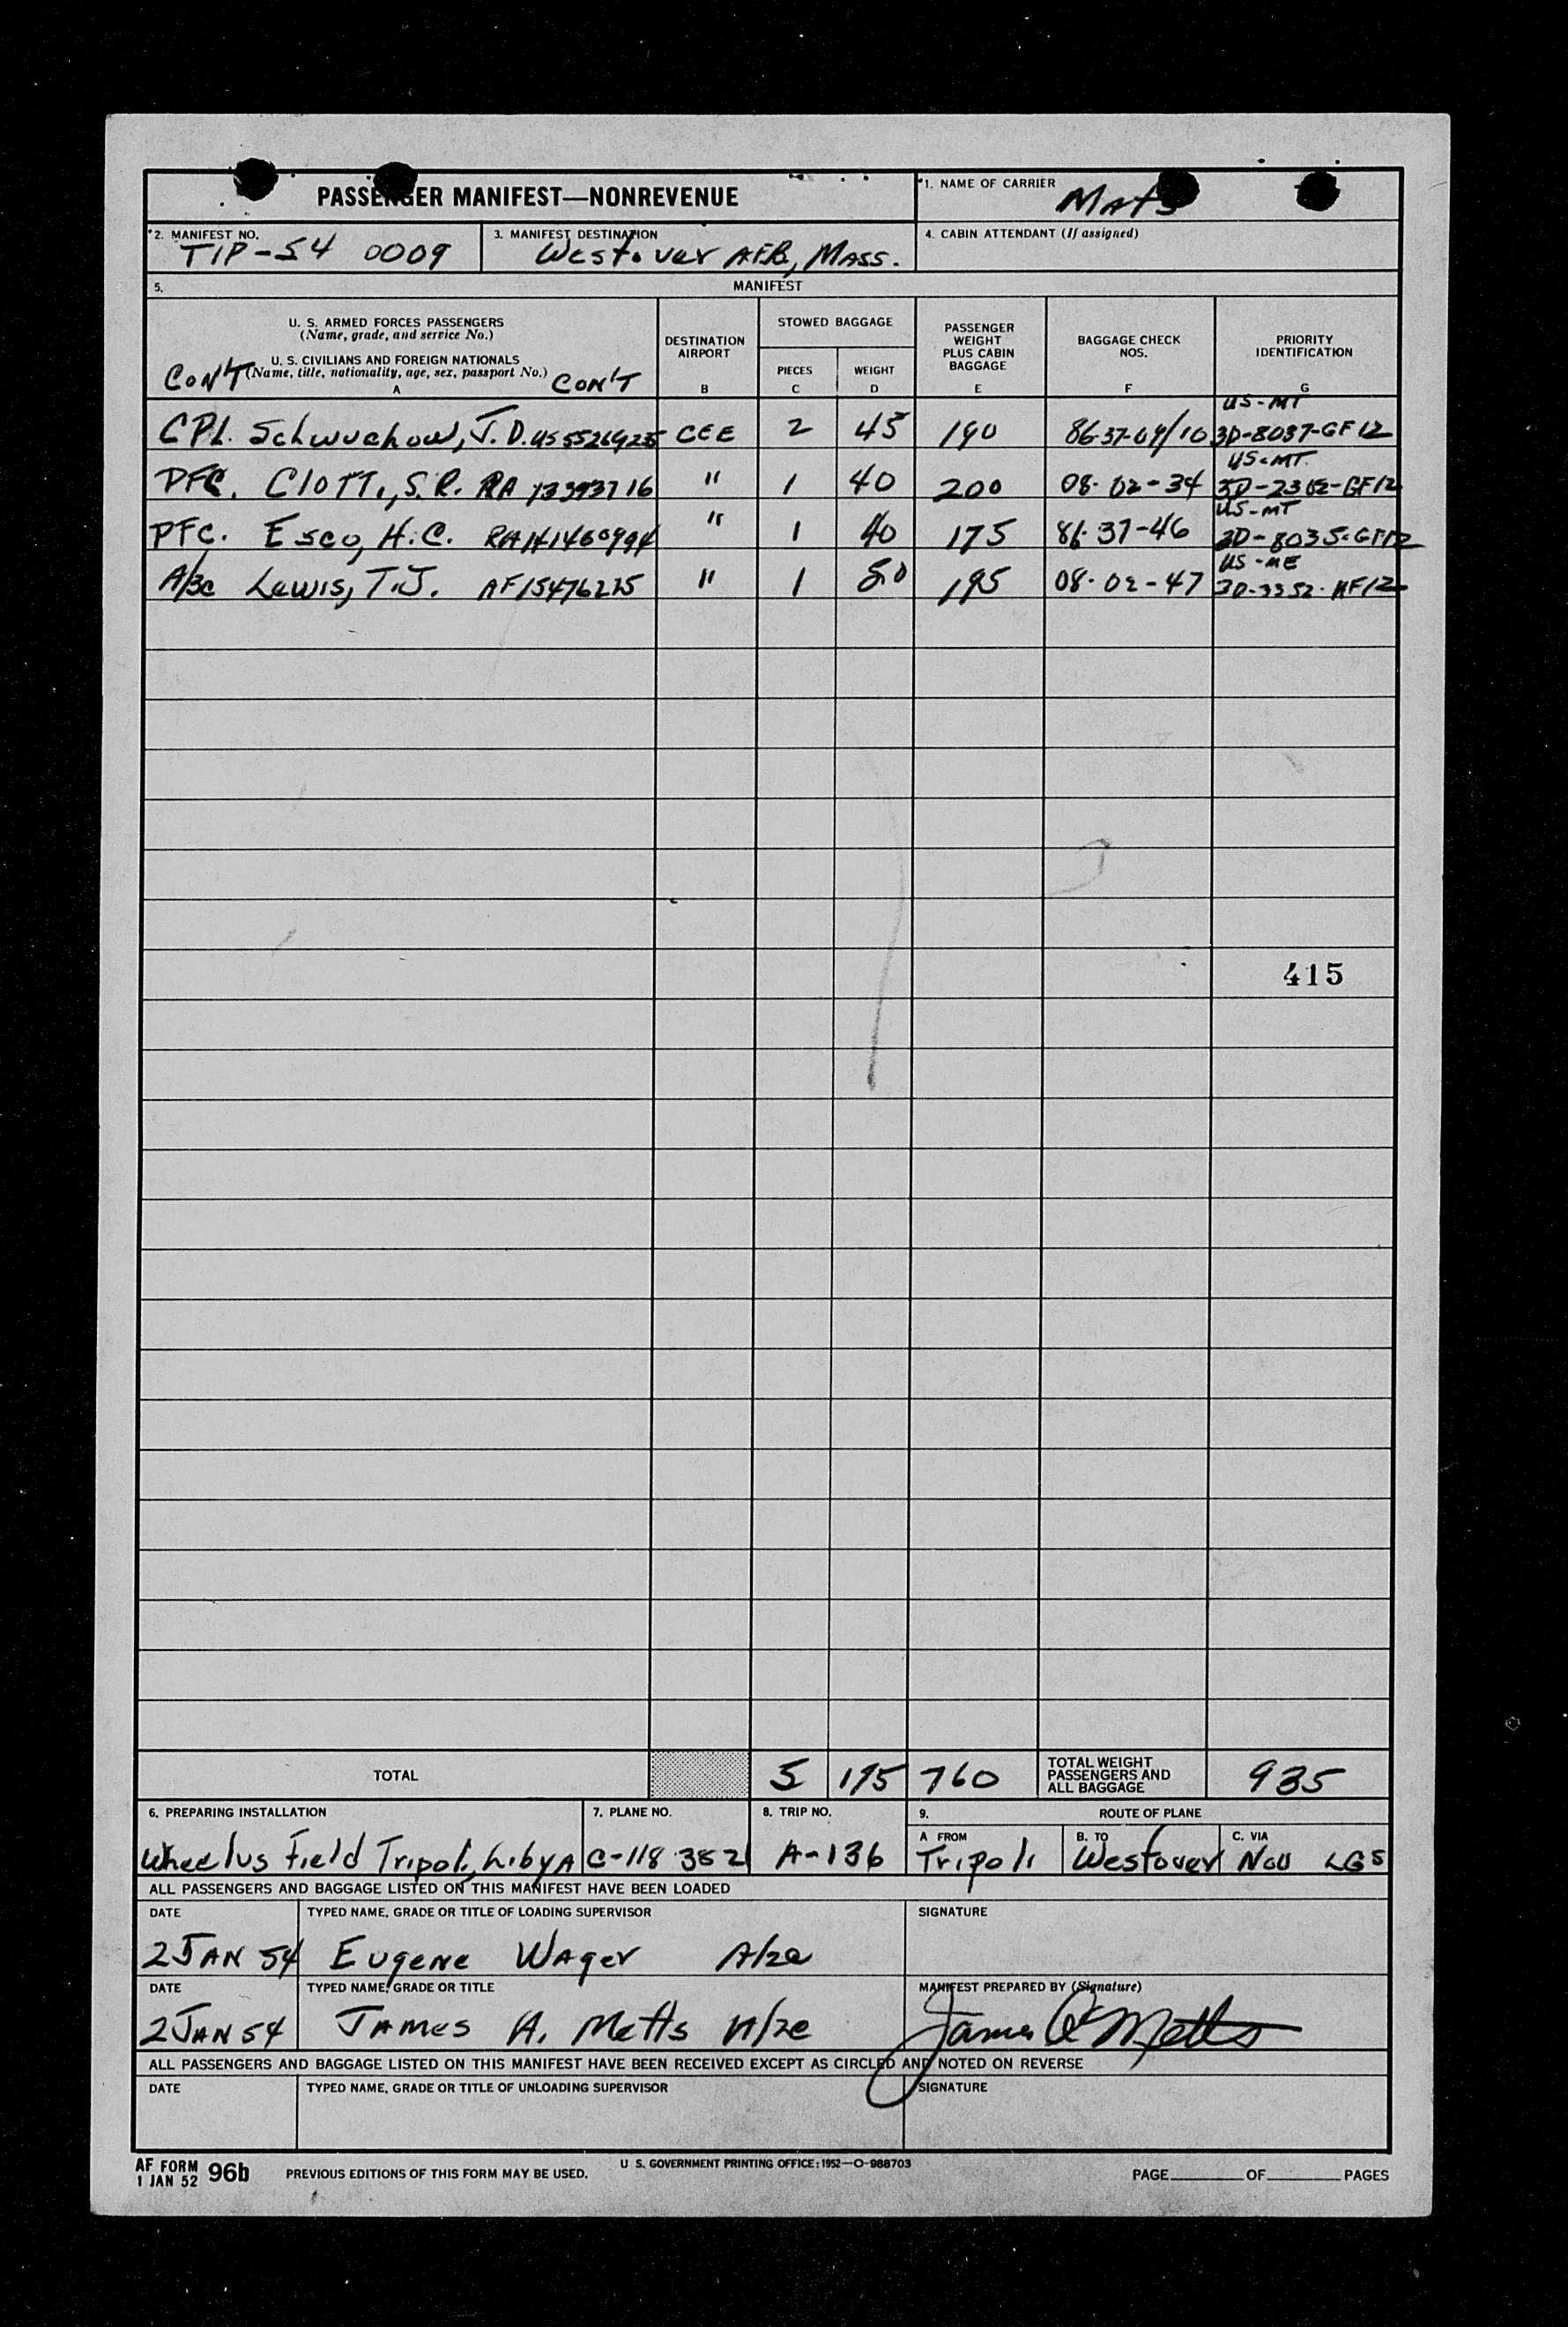 PASSENGER MANIFEST—NONREVENUE
1. NAME OF CARRIER
MATS
2. MANIFEST NO.
TIP-54 0009
3. MANIFEST DESTINATION
Westover AFB, MASS.
4. CABIN ATTENDANT (If assigned)
5.
MANIFEST
U. S. ARMED FORCES PASSENGERS
(Name, grade, and service No.)
U. S. CIVILIANS AND FOREIGN NATIONALS
CON'T (Name, title, nationality, age, sex, passport No.) CON'T
A
DESTINATION AIRPORT
B
STOWED BAGGAGE
PIECES
C
WEIGHT
D
PASSENGER WEIGHT PLUS CABIN BAGGAGE
E
BAGGAGE CHECK NOS.
F
PRIORITY IDENTIFICATION
G
US-MT
CPL. Schwuchow, J.D. US 55269225 CEE 2 45 190 86-37-09/10 3D-8037-GF12
US-MT
PFC. Clott, S.R. RA 13393716 " 1 40 200 08-02-34 3D-2302-GF12
US-MT
PFC. Esco, H.C. " 1 40 175 86-37-46 3D-8035-GF12
US-ME
A/3c Lewis, T.J. AF15476225 " 1 50 195 08-02-47 3D-3352-AF12
415
TOTAL 5 175 760 TOTAL WEIGHT PASSENGERS AND ALL BAGGAGE 935
6. PREPARING INSTALLATION
Wheelus Field Tripoli, Libya
7. PLANE NO.
C-118 3821
8. TRIP NO.
A-136
9. ROUTE OF PLANE
A FROM
Tripoli
B. TO
Westover
C. VIA
NOU LGS
ALL PASSENGERS AND BAGGAGE LISTED ON THIS MANIFEST HAVE BEEN LOADED
DATE
2 JAN 54
TYPED NAME, GRADE OR TITLE OF LOADING SUPERVISOR
Eugene Wager A/2c
SIGNATURE
DATE
2 JAN 54
TYPED NAME, GRADE OR TITLE
JAMES A. Metts A/2c
MANIFEST PREPARED BY (Signature)
James A Metts
ALL PASSENGERS AND BAGGAGE LISTED ON THIS MANIFEST HAVE BEEN RECEIVED EXCEPT AS CIRCLED AND NOTED ON REVERSE
DATE
TYPED NAME, GRADE OR TITLE OF UNLOADING SUPERVISOR
SIGNATURE
AF FORM 96b
1 JAN 52
PREVIOUS EDITIONS OF THIS FORM MAY BE USED.
U S. GOVERNMENT PRINTING OFFICE: 1952—O-988703
PAGE OF PAGES